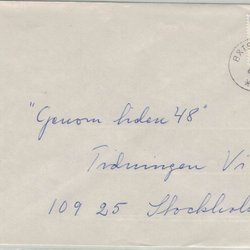 "Genom tiden 48"
Tidningen Vi
109 25 Stockhol